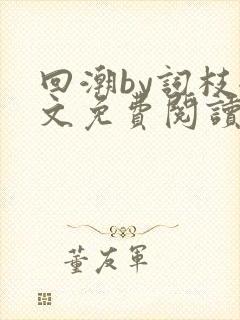 回潮by词枝
文免費閱讀
董友军